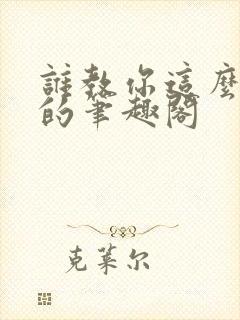 誰教你這麼
的筆趣閣
克萊尔